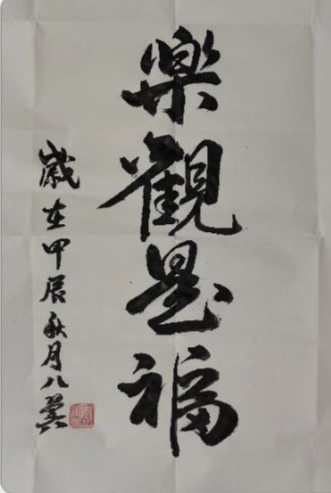 樂觀是福
歲在甲辰秋月八翁